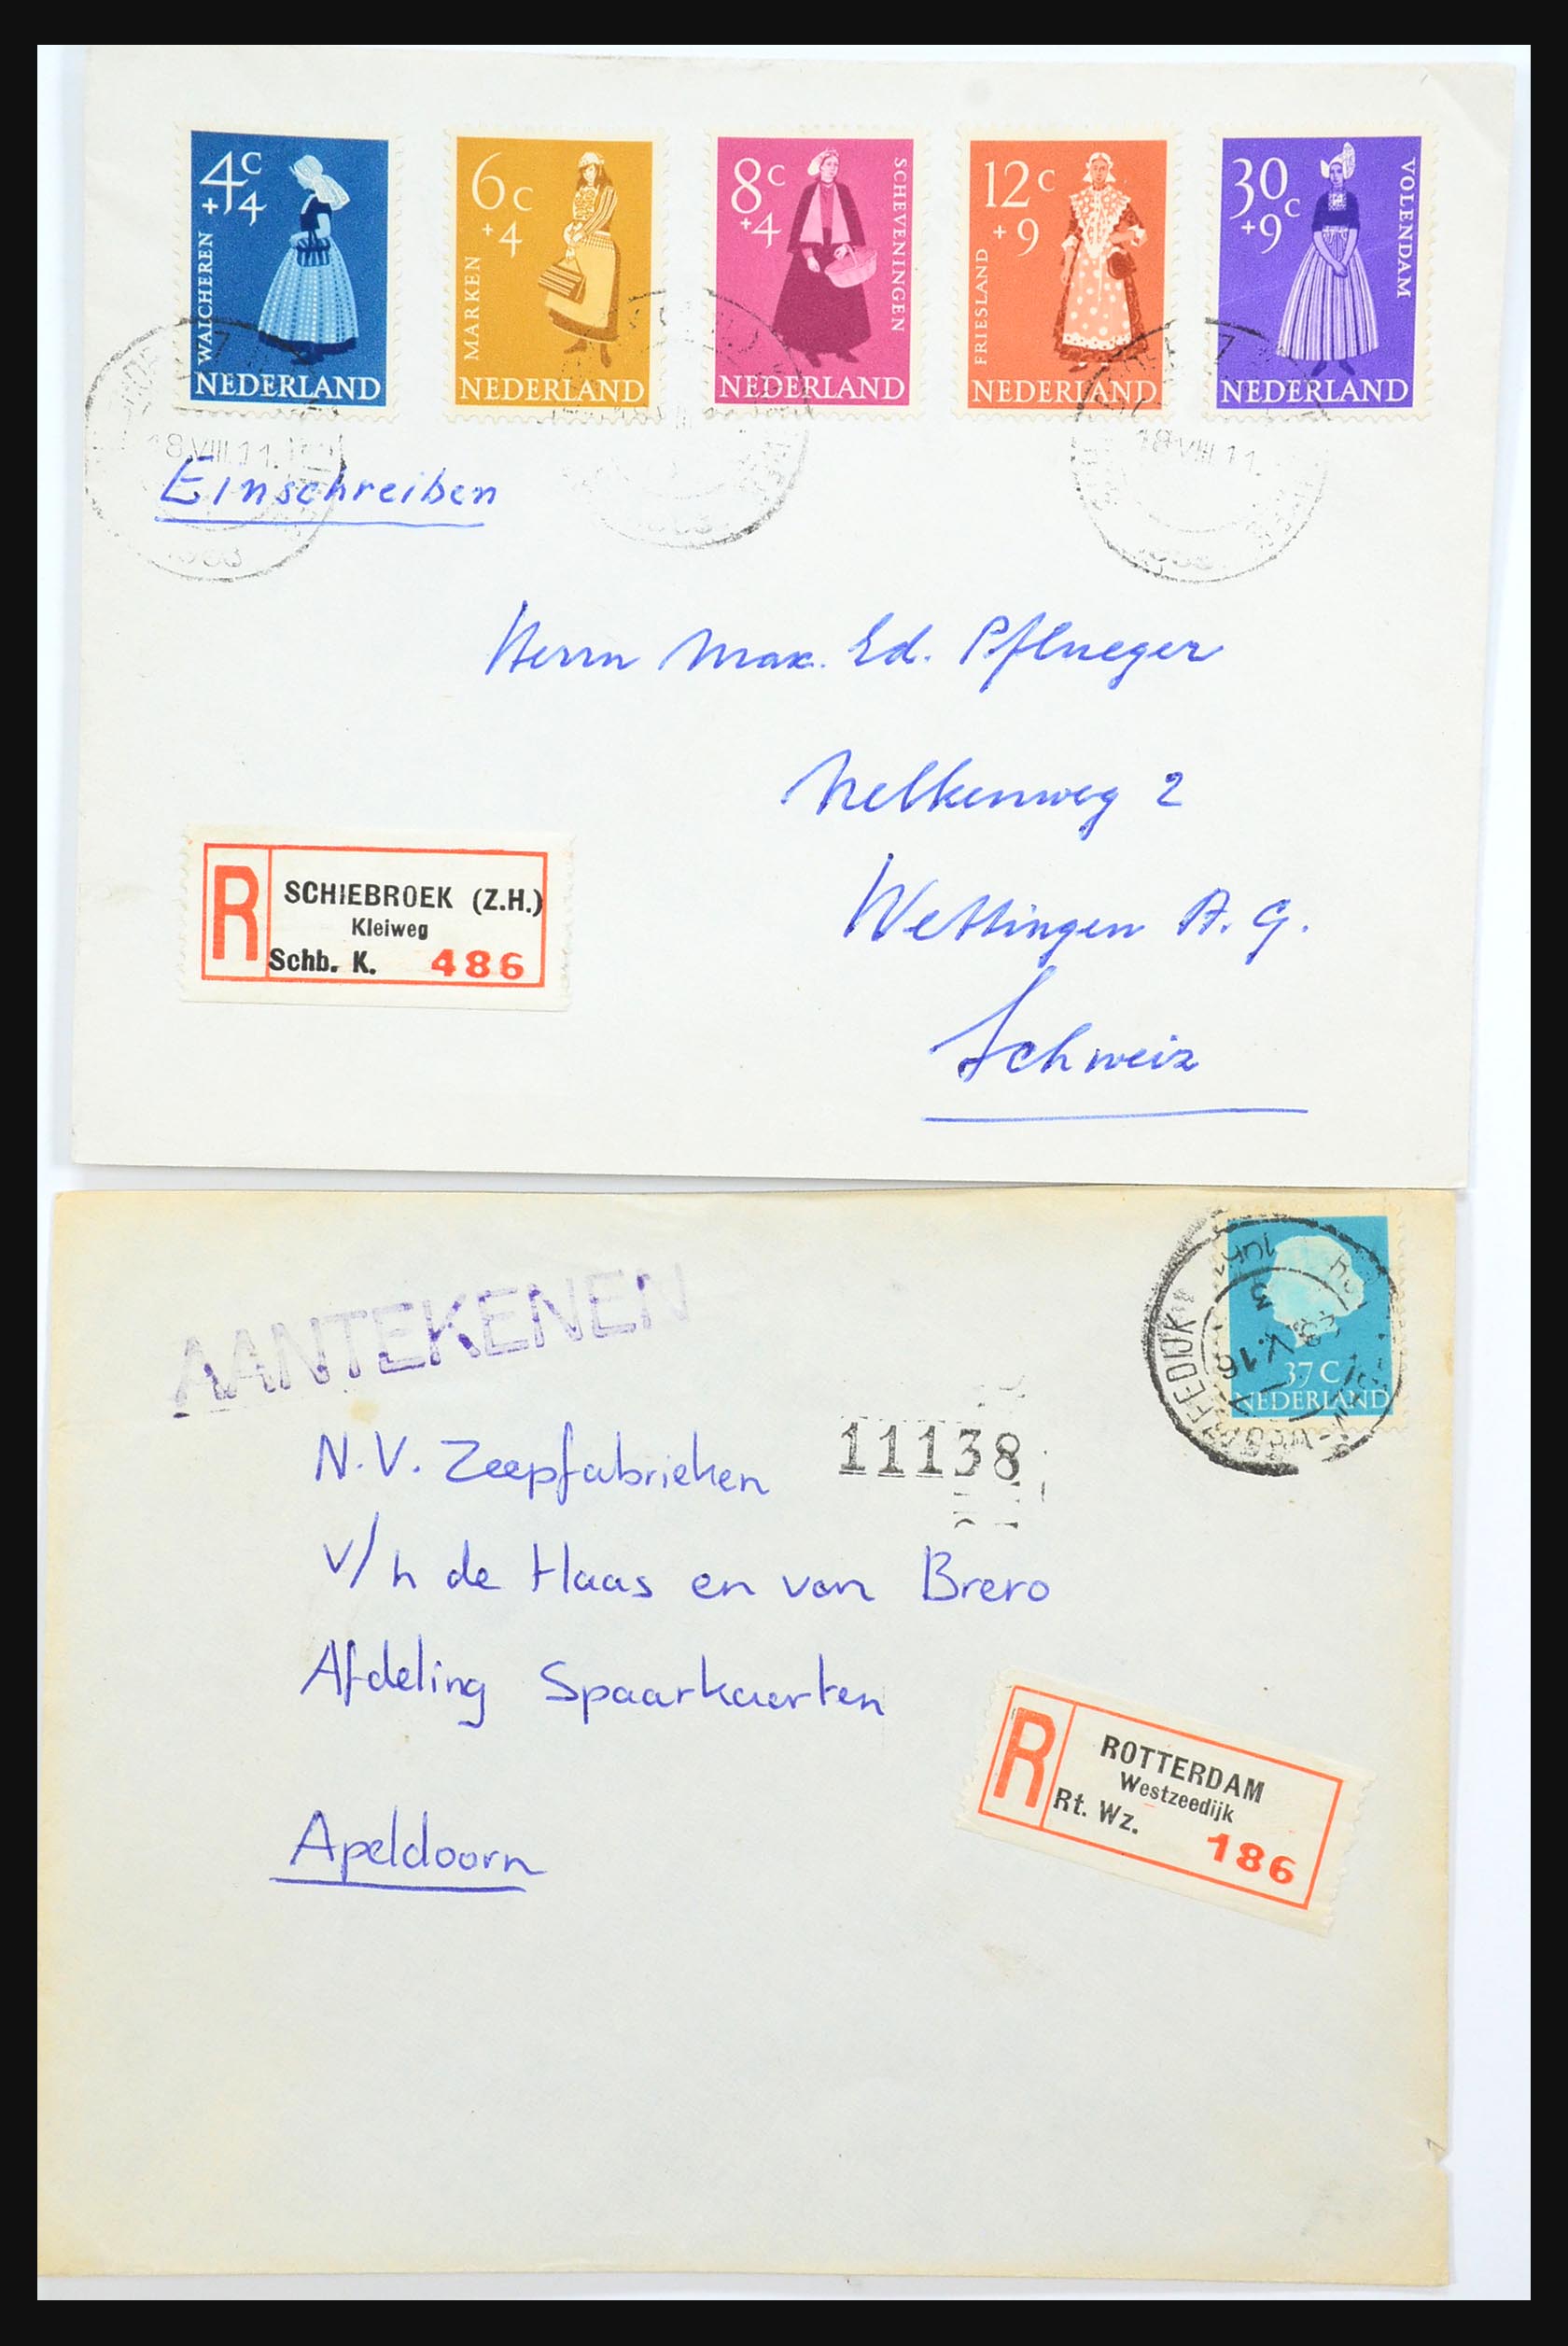 4c
+4
WALCHEREN
NEDERLAND
6c
+4
MARKEN
NEDERLAND
8c
+4
SCHEVENINGEN
NEDERLAND
12c
+9
FRIESLAND
NEDERLAND
30c
+9
VOLENDAM
NEDERLAND
18 VIII 11.
18 VIII 11.
Einschreiben
Herrn Max. Ed. Pflueger
Nelkenweg 2
Wettingen A. G.
Schweiz
R
SCHIEBROEK (Z.H.)
Kleiweg
Schb. K. 486
AANTEKENEN
37 C
NEDERLAND
11138
N.V. Zeepfabrieken
v/h de Haas en van Brero
Afdeling Spaarkaarten
Apeldoorn
R
ROTTERDAM
Westzeedijk
Rt. Wz. 186